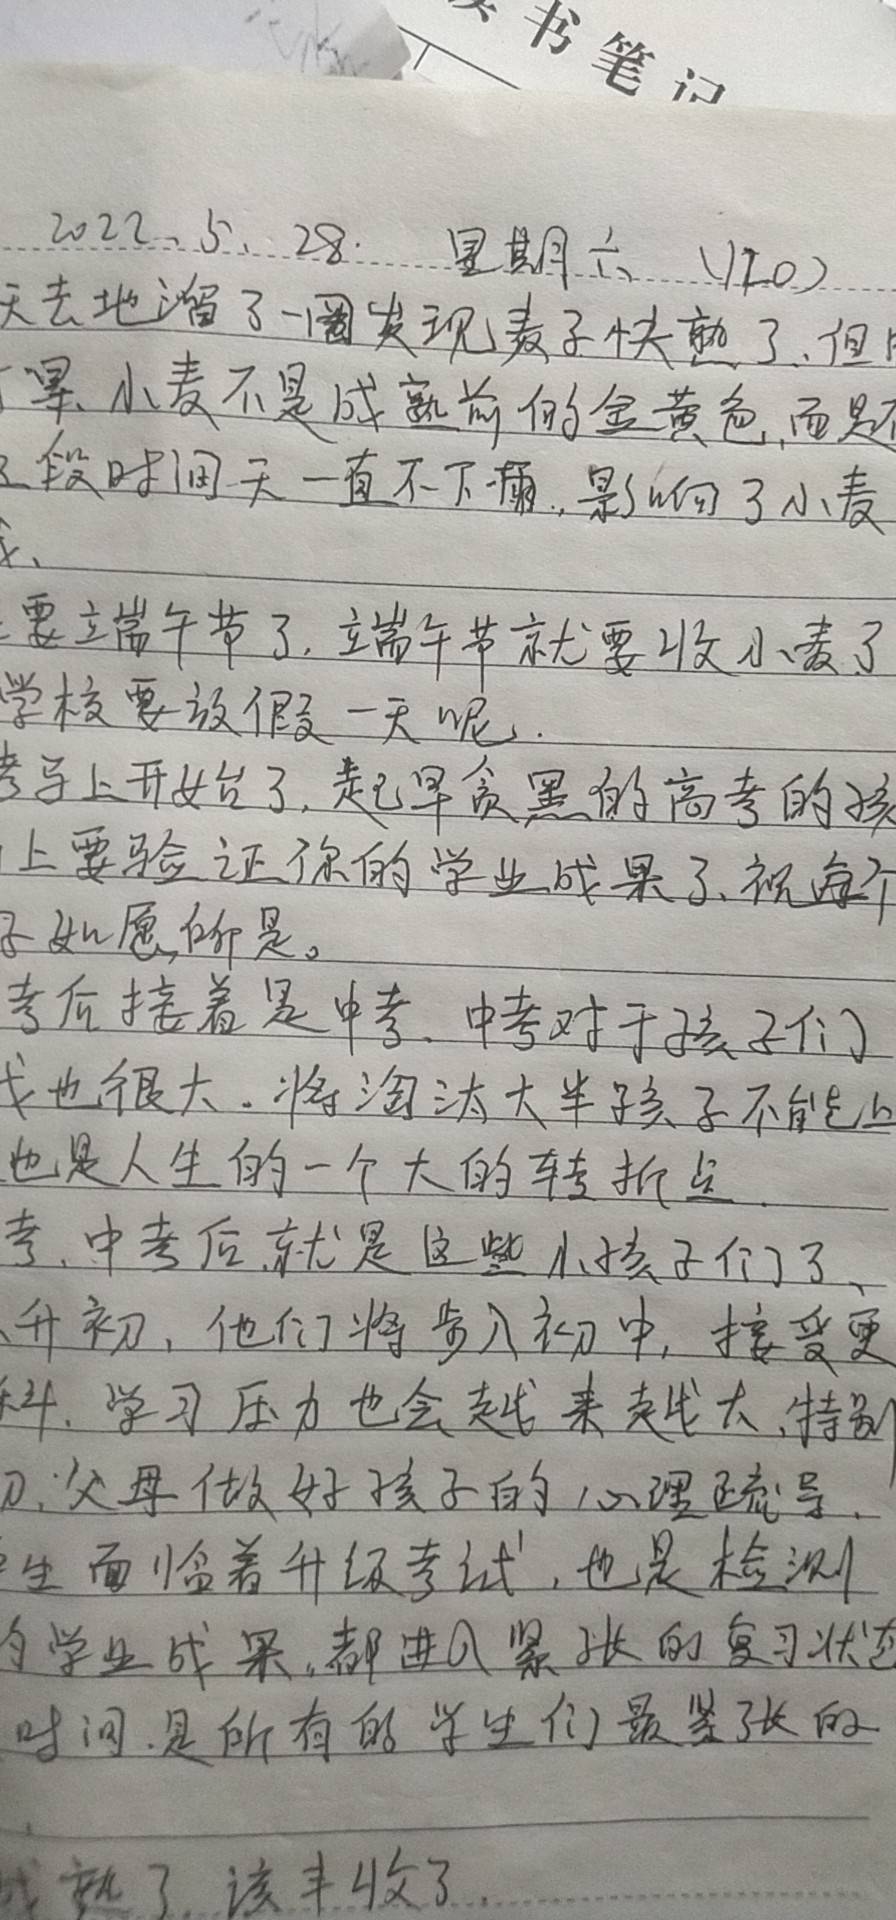 书笔记
2022、5、28. 星期六、(120)
天去地溜了一圈发现麦子快熟了、但
旱、小麦不是成熟前的金黄色,而是
段时间天一直不下雨.,影响了小麦
要立端午节了,立端午节就要收小麦了
学校要放假一天呢.
考马上开始了,起早贪黑的高考的孩
上要验证你的学业成果了、祝每个
子如愿,所是。
考后接着是中考、中考对于孩子们
也很大。将淘汰大半孩子不能上
也是人生的一个大的转折点.
考、中考后,就是这些小孩子们了、
升初、他们将步入初中,接受更
科、学习压力也会越来越大、特别
初、父母做好孩子的心理疏导、
生面临着升级考试,也是检测
的学业成果,都进入紧张的复习状态
时间.是所有的学生们最紧张的
熟了.该丰收了.